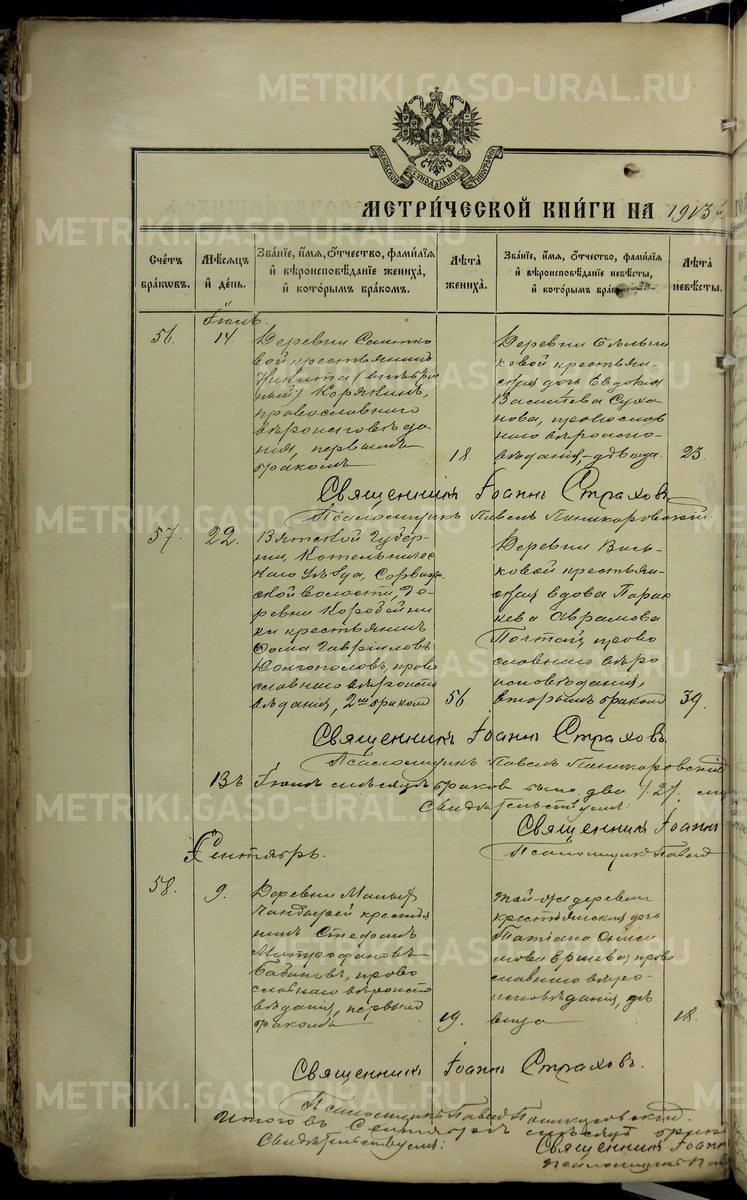 METRIKI.GASO-URAL.RU METRIKI.GASO-URAL.RU
МОСКОВСКОЙ СѴНОДАЛЬНОЙ ТИПОГРАФІИ
МЕТРИ́ЧЕСКОЙ КНИ́ГИ НА 1913
Сче́тъ бра́кѡвъ.
Мѣ́сяцъ и҆ де́нь.
Зва́нїе, и҆́мя, ѻ҆́тчество, фами́лїя
и҆ вѣроисповѣ́данїе жениха̀,
и҆ кото́рымъ бра́комъ.
Лѣ́та жениха̀.
Зва́нїе, и҆́мя, ѻ҆́тчество, фами́лїя
и҆ вѣроисповѣ́данїе невѣ́сты,
и҆ кото́рымъ бра́комъ.
Лѣ́та невѣ́сты.
Іюль.
56. 14.
Деревни
вой крестьянинъ
Никита
ный) Корякинъ,
православнаго
вѣроисповѣда
нія, первымъ
бракомъ 18.
Деревни
ковой крестьян-
ская дочь Евдокія
Василіева Суха
нова, православ
наго вѣроиспо-
вѣданія, дѣвица. 23.
Священникъ Іоаннъ Страховъ
Псаломщикъ Павелъ
57. 22.
Вятской Губер
ніи, Котельничес
каго Уѣзда,
ской волости, де
ревни Коробейни
ки крестьянинъ
Ѳома Гавріиловъ
Долгополовъ, право
славнаго вѣроиспо
вѣданія, 2мъ бракомъ 56.
Деревни Вась-
ковой крестьян-
ская вдова Парас
кева Аврамова
православнаго вѣро
исповѣданія,
вторымъ бракомъ 39.
Священникъ Іоаннъ Страховъ.
Псаломщикъ Павелъ
Въ Іюлѣ мѣсяцѣ браковъ было два /2/.
Свидѣтельствуемъ:
Священникъ Іоаннъ
Псаломщикъ Павелъ
Сентябрь.
58. 9.
Деревни Малыхъ
крестья
нинъ Стефанъ
Митрофановъ
Бабиновъ, право
славнаго вѣроиспо
вѣданія, первымъ
бракомъ 19.
Той-же деревни
крестьянская дочь
Татіана Ониси
мова Ершева, право
славнаго вѣро-
исповѣданія, дѣ
вица 18.
Священникъ Іоаннъ Страховъ.
Псаломщикъ Павелъ
Итого въ Сентябрѣ мѣсяцѣ
Свидѣтельствуемъ:
Священникъ Іоаннъ
Псаломщикъ